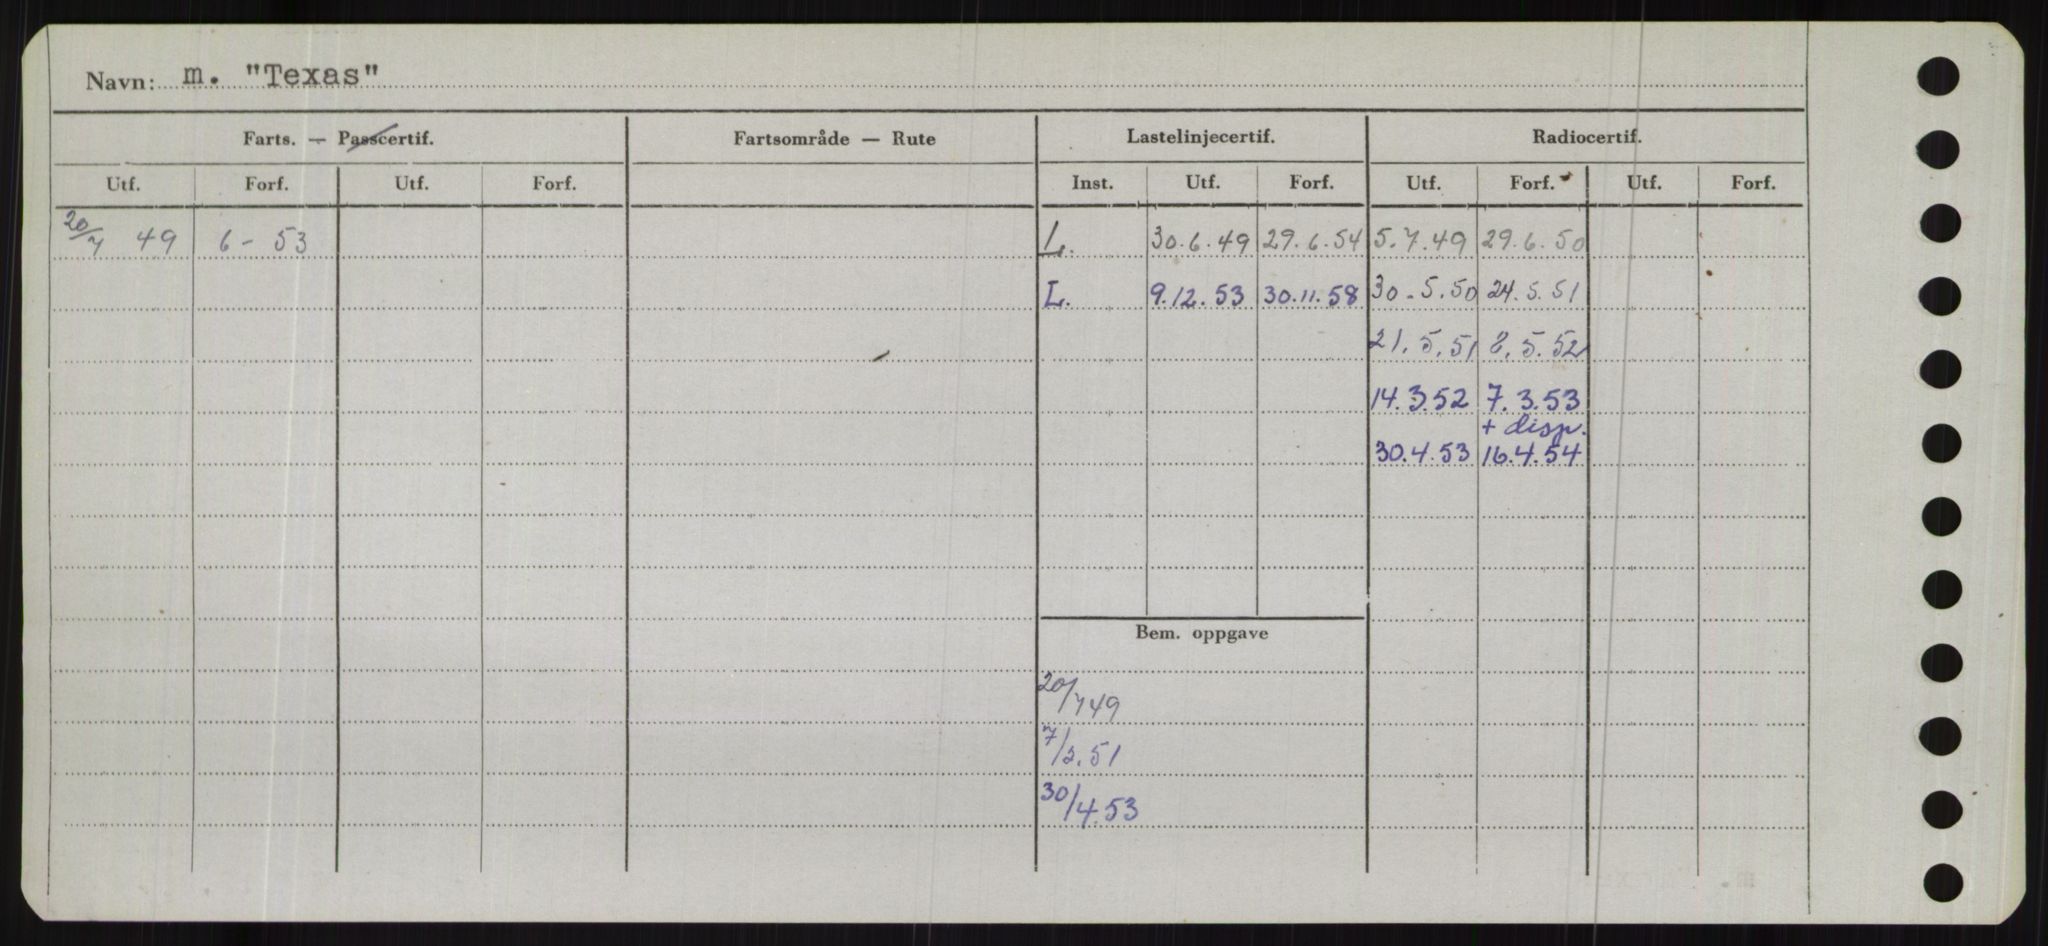 Navn: m. "Texas"
Farts. — Passcertif. Fartsområde — Rute Lastelinjecertif. Radiocertif.
Utf. Forf. Utf. Forf. Inst. Utf. Forf. Utf. Forf. Utf. Forf.
20/7 49 6 - 53 L. 30.6.49 29.6.54 5.7.49 29.6.50
L. 9.12.53 30.11.58 30.5.50 24.5.51
21.5.51 8.5.52
14.3.52 7.3.53
+ disp.
30.4.53 16.4.54
Bem. oppgave
20/7 49
7/2.51
30/4.53